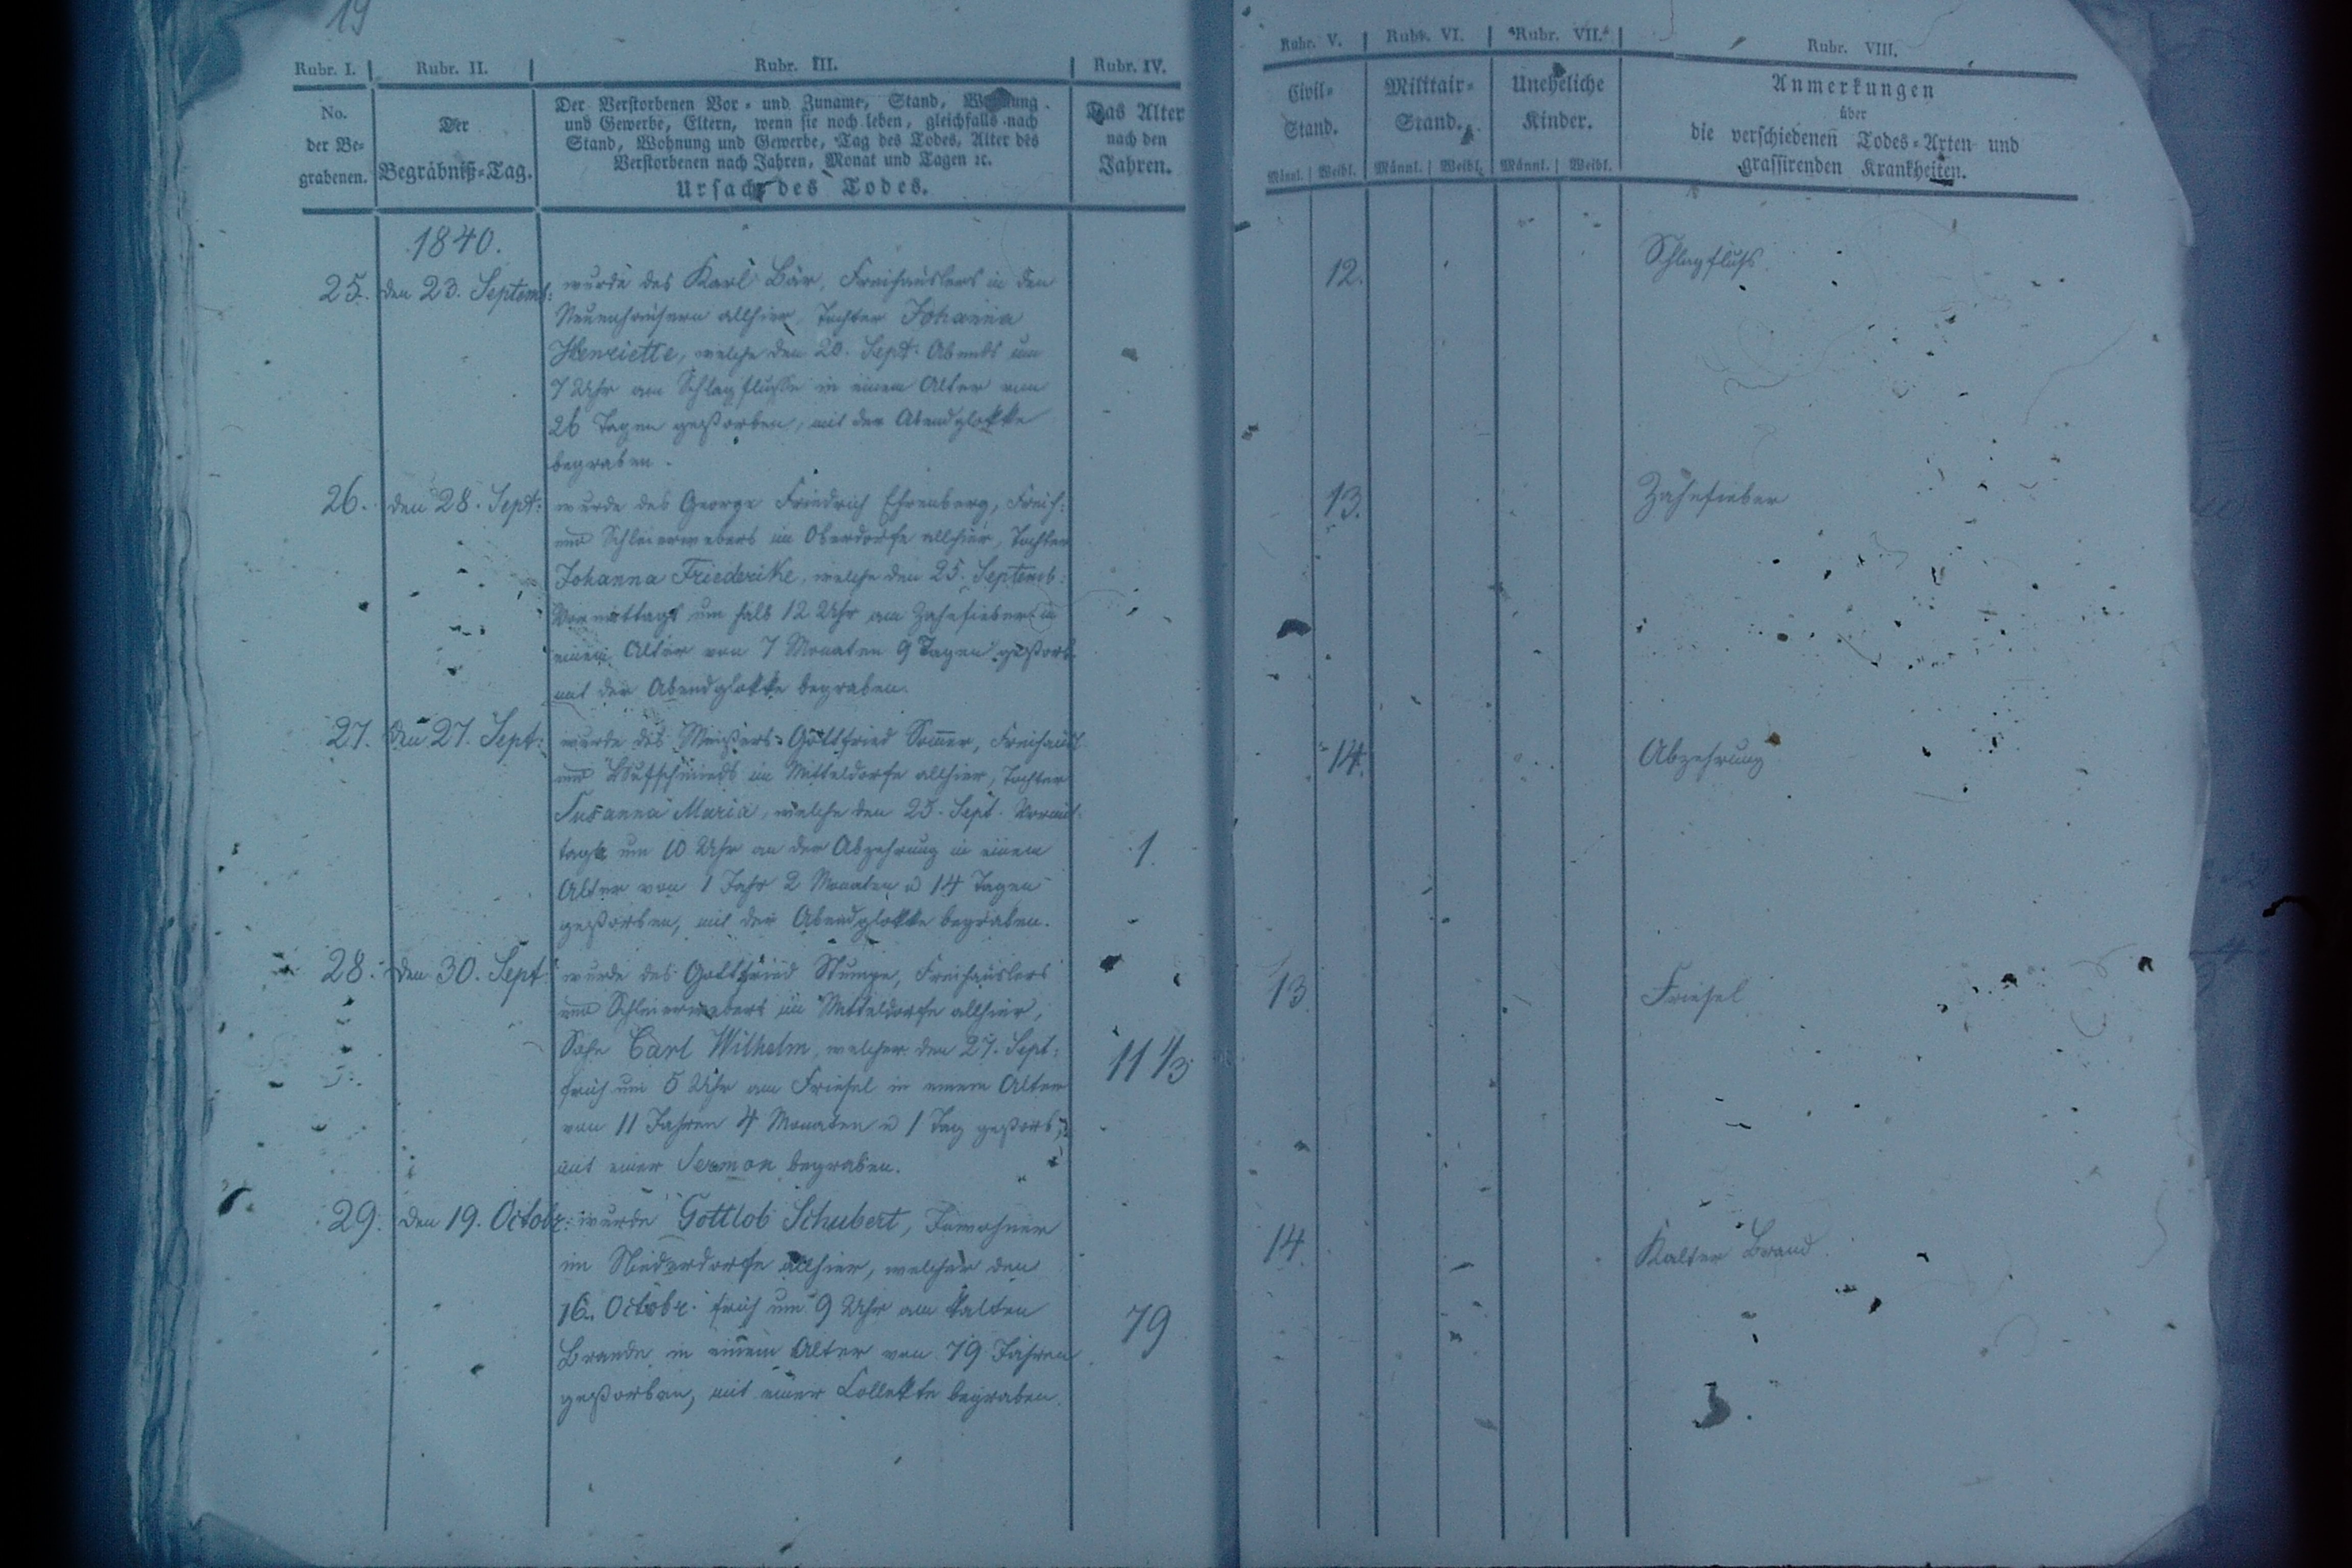 19
Rubr. I. Rubr. II. Rubr. III. Rubr. IV.
No. der Be-grabenen.
Der Begräbniß-Tag.
Der Verstorbenen Vor- und Zuname, Stand, Wohnung
und Gewerbe, Eltern, wenn sie noch leben, gleichfalls nach
Stand, Wohnung und Gewerbe, Tag des Todes, Alter des
Verstorbenen nach Jahren, Monat und Tagen ꝛc.
Ursach des Todes.
Das Alter
nach den
Jahren.
1840.
25. den 23. Septemb: wurde des Karl Bär, Freihäuslers in den
Neuenhäusern allhier, Tochter Johanna
Henriette, welche den 20. Sept: Abends um
7 Uhr am Schlagflusse in einem Alter von
26 Tagen gestorben, mit der Abendglokke
begraben.
26. den 28. Sept: wurde des George Friedrich Ehrenberg, Freih:
und Schleierwebers im Oberdorfe allhier, Tochter
Johanna Friederike, welche den 25. Septemb:
Vormittags um halb 12 Uhr am Zahnfieber in
einem Alter von 7 Monaten 9 Tagen gestorb:
mit der Abendglokke begraben.
27. den 27. Sept: wurde des Meisters Gottfried Som̄er, Freihäusl
und Hufschmieds im Mitteldorfe allhier, Tochter
Susanna Maria, welche den 25. Sept. Vormit-
tags um 10 Uhr an der Abzehrung in einem
Alter von 1 Jahr 2 Monaten u 14 Tagen
gestorben, mit der Abendglokke begraben.
1.
28. den 30. Sept: wurde des Gottfried Stumpe, Freihäuslers
und Schleierwebers im Mitteldorfe allhier,
Sohn Carl Wilhelm, welcher den 27. Sept:
früh um 5 Uhr am Friesel in einem Alter
von 11 Jahren 4 Monaten u 1 Tag gestorb:
mit einer Sermon begraben.
11 1/3
29. den 19. Octobr: wurde Gottlob Schubert, Inwohner
im Niederdorfe allhier, welcher den
16. Octobr. früh um 9 Uhr am kalten
Brande in einem Alter von 79 Jahren
gestorben, mit einer Collekte begraben.
79
Rubr. V. Rubr. VI. Rubr. VII. Rubr. VIII.
Civil-Stand.
Militair-Stand.
Uneheliche Kinder.
Anmerkungen
über
die verschiedenen Todes-Arten und
grassirenden Krankheiten.
Männl. Weibl. Männl. Weibl. Männl. Weibl.
12. Schlagfluß
13. Zahnfieber
14. Abzehrung
13 Friesel
14. Kalter Brand